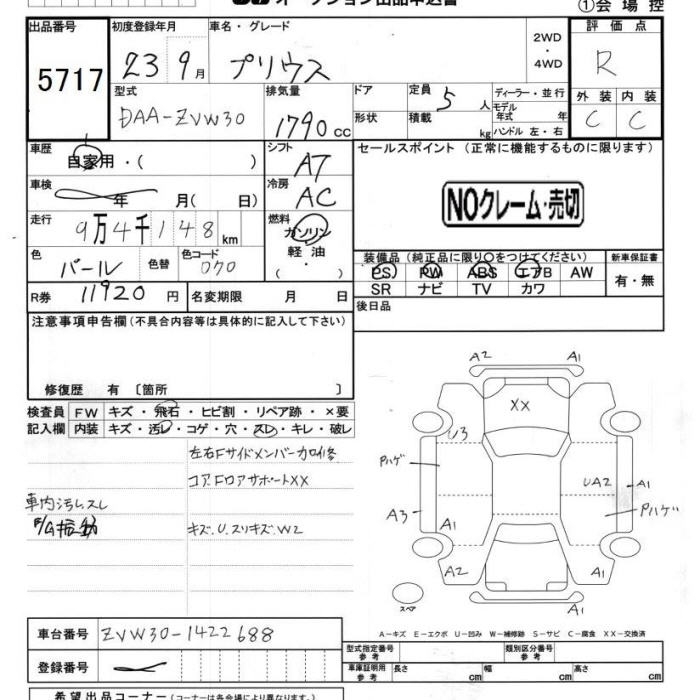 オークション出品申込書 ①会場控
出品番号 初度登録年月 車名・グレード 2WD ・ 4WD 評価点
5717 23 9月 プリウス R
型式 排気量 ドア 定員 5 人 ディーラー・並行 外装 内装
DAA-ZVW30 1790 cc 形状 積載 kg モデル年式 年 ハンドル 左・右 C C
車歴 自家用・( ) シフト AT セールスポイント (正常に機能するものに限ります)
車検 年 月( 日) 冷房 AC NOクレーム・売切
走行 9万4千148 km 燃料 ガソリン
色 パール 色替 色コード 070 軽油 ( ・ ) 装備品(純正品に限り○をつけてください) 新車保証書
PS PW ABS エアB AW 有・無
SR ナビ TV カワ
R券 11920 円 名変期限 月 日 後日品
注意事項申告欄(不具合内容等は具体的に記入して下さい)
修復歴 有 〔箇所 〕
検査員 FW キズ・飛石・ヒビ割・リペア跡・×要
記入欄 内装 キズ・汚レ・コゲ・穴・スレ・キレ・破レ
左右Fサイドメンバー加修
コアFロアサポートXX
車内汚レスレ
振動 キズ.U.スリキズ.W2
A2 A1
XX
U3
Pハゲ UA2 A1
A3 A1 Pハゲ
A2 A1
スペア A1
A-キズ E-エクボ U-凹み W-補修跡 S-サビ C-腐食 XX-交換済
車台番号 ZVW30-1422688
型式指定番号 参考 類別区分番号 参考
登録番号 車庫証明用 参考 長さ cm 幅 cm 高さ cm
希望出品コーナー(コーナーは各会場により異なります。)